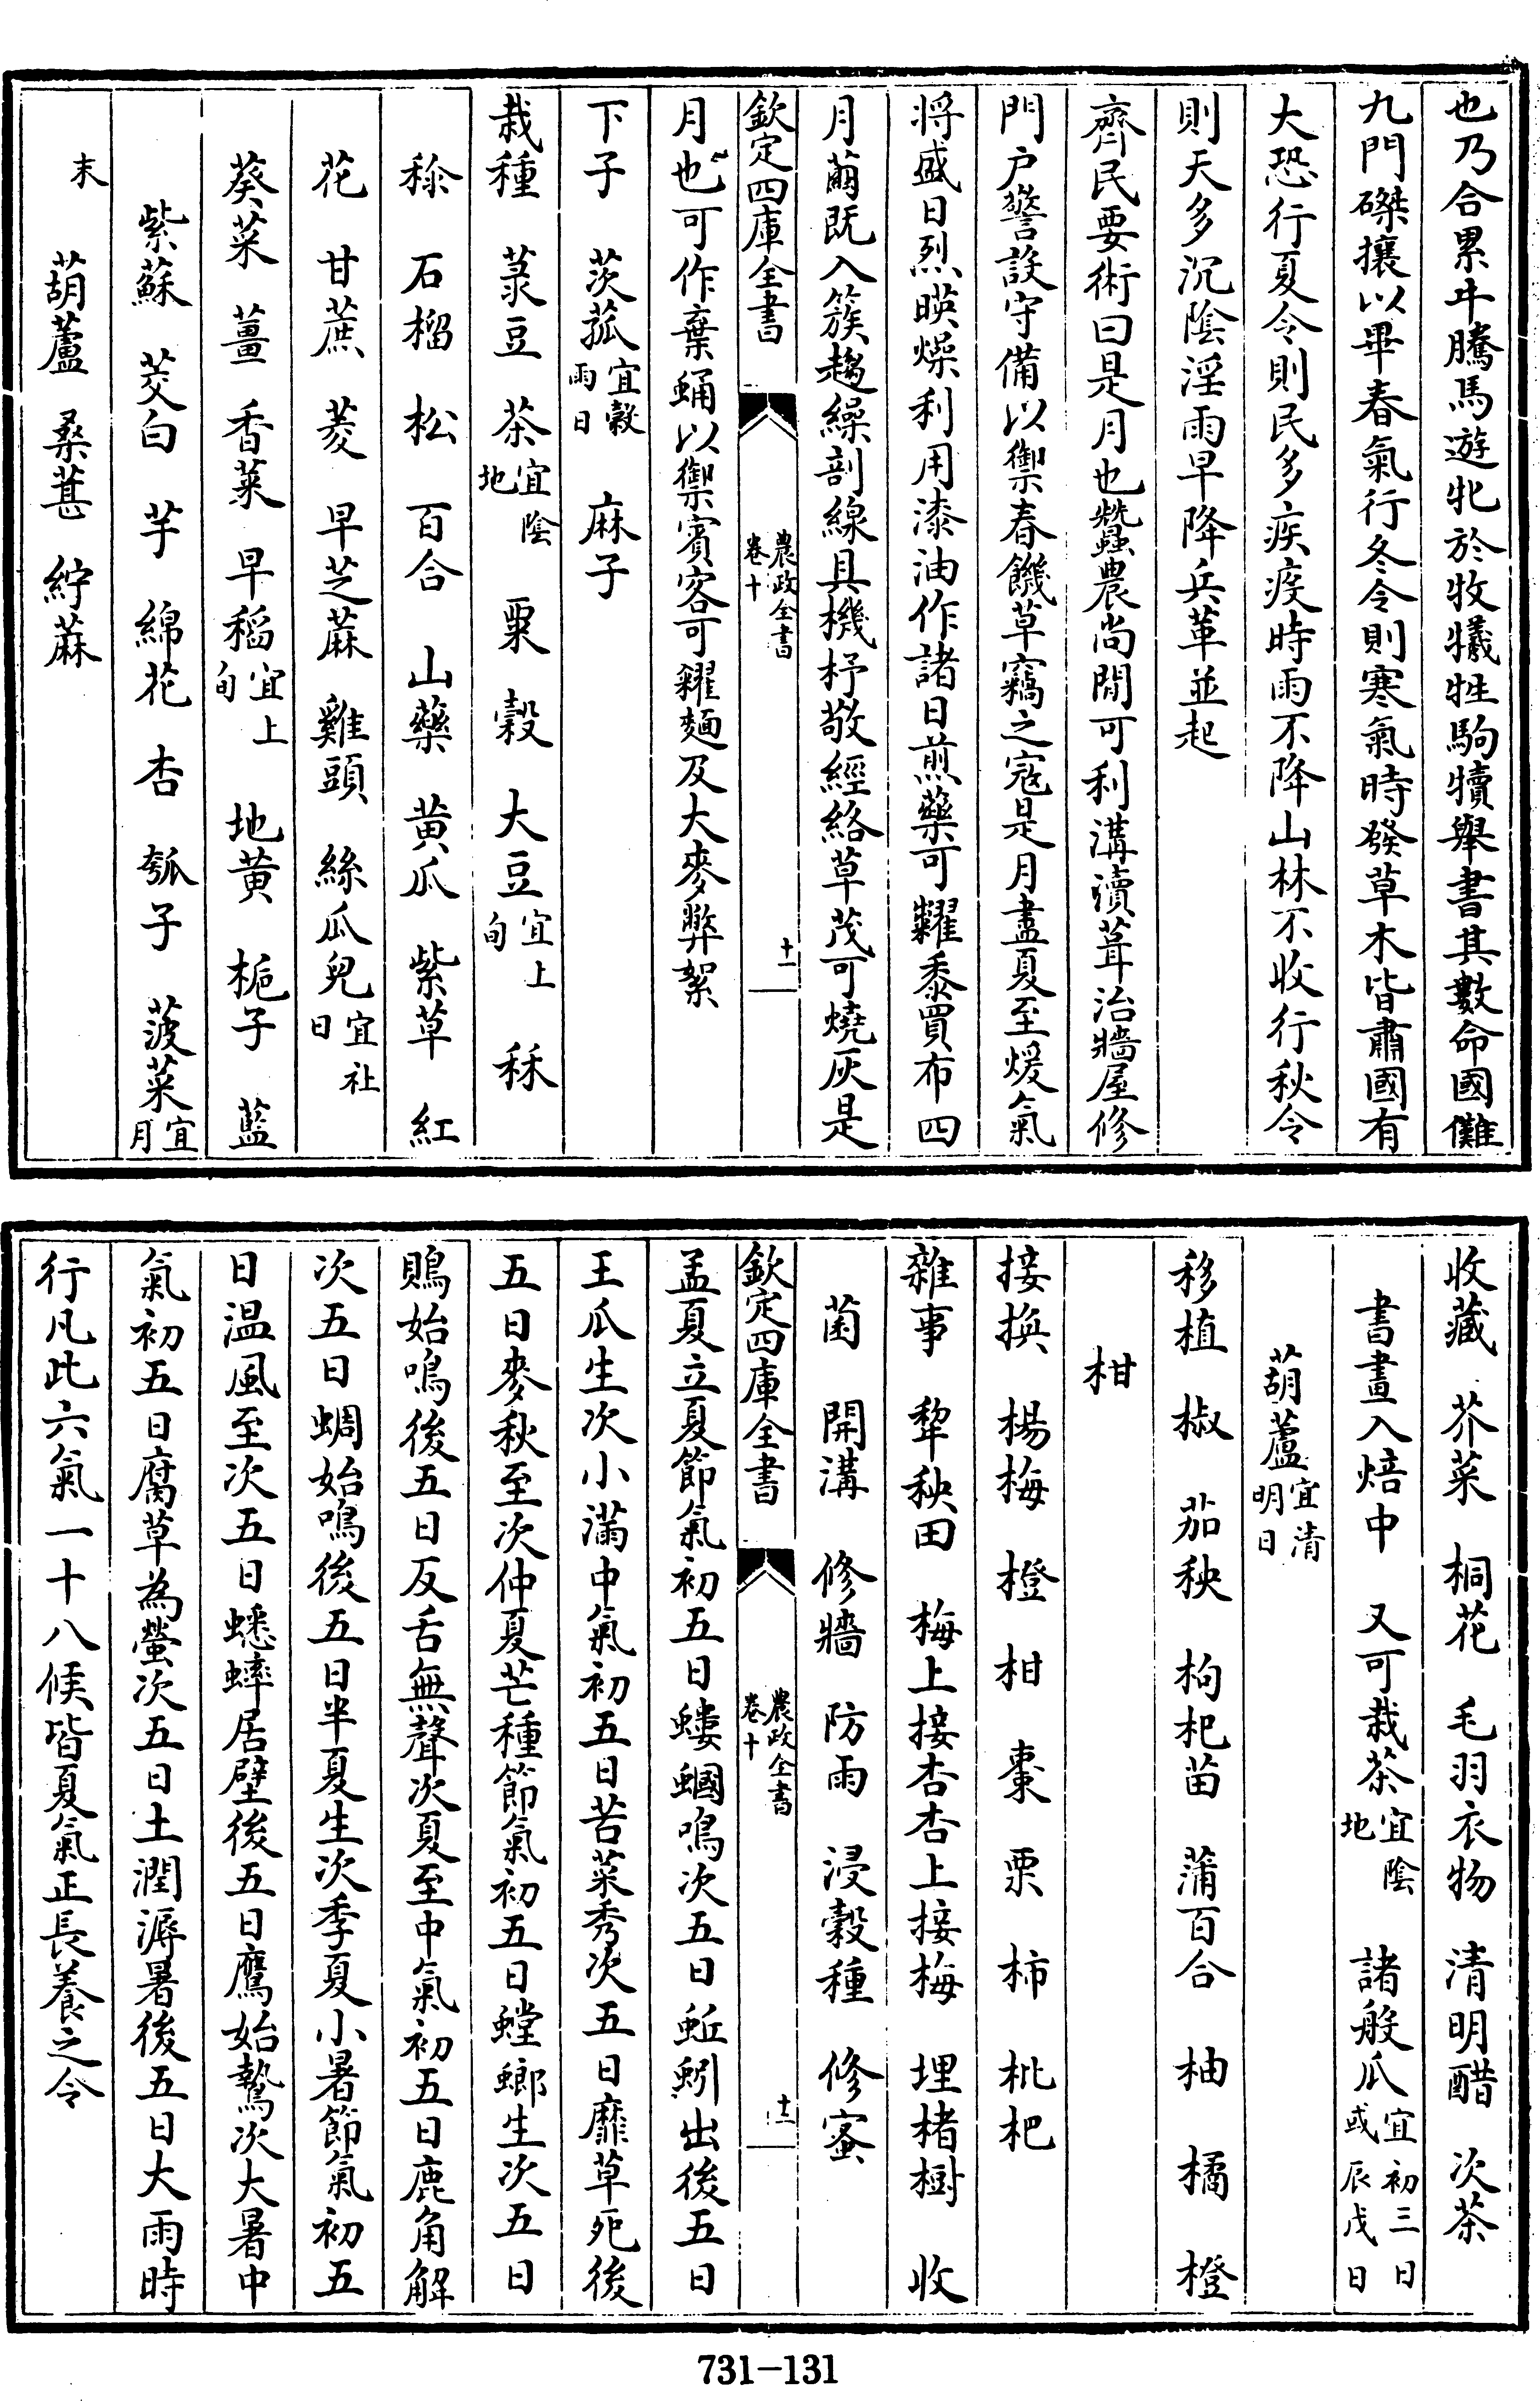 也乃合累牛騰馬遊牝於牧犧牲駒犢舉書其數命國儺
九門磔攘以畢春氣行冬令則寒氣時發草木皆肅國有
大恐行夏令則民多疾疫時雨不降山林不收行秋令
則天多沉陰淫雨早降兵革並起
齊民要術曰是月也蠶農尚閒可利溝瀆葺治牆屋修
門户警設守備以禦春饑草竊之寇是月盡夏至煖氣
將盛日烈暎燥利用漆油作諸日煎藥可糶黍買布四
月繭既入簇趨繰剖線具機杼敬經絡草茂可燒灰是
欽定四庫全書 農政全書卷十 十一
月也可作棗蛹以禦賓客可糴麵及大麥弊絮
下子 茨菰宜穀雨日 麻子
栽種 菉豆 茶宜陰地 粟 穀 大豆宜上旬 秫
稌 石榴 松 百合 山藥 黄瓜 紫草 紅
花 甘蔗 菱 早芝蔴 雞頭 絲瓜兒宜社日
葵菜 薑 香菜 早稻宜上旬 地黄 梔子 藍
紫蘇 茭白 芋 綿花 杏 瓠子 菠菜宜月
末 葫蘆 桑葚 紵蔴
收藏 芥菜 桐花 毛羽衣物 清明醋 次茶
書畫入焙中 又可栽茶宜陰地 諸般瓜宜初三日或辰戊日
葫蘆宜清明日
移植 椒 茄秧 枸杞苗 蒲百合 柚 橘 橙
柑
接換 楊梅 橙 柑 棗 栗 柿 枇杷
雜事 犂秧田 梅上接杏杏上接梅 埋楮樹 收
菌 開溝 修牆 防雨 浸穀種 修蜜
欽定四庫全書 農政全書卷十 十二
孟夏立夏節氣初五日螻蟈鳴次五日蚯蚓出後五日
王瓜生次小滿中氣初五日苦菜秀次五日靡草死後
五日麥秋至次仲夏芒種節氣初五日螳螂生次五日
鵙始鳴後五日反舌無聲次夏至中氣初五日鹿角解
次五日蜩始鳴後五日半夏生次季夏小暑節氣初五
日温風至次五日蟋蟀居壁後五日鷹始鷙次大暑中
氣初五日腐草為螢次五日土潤溽暑後五日大雨時
行凡此六氣一十八候皆夏氣正長養之令
731-131